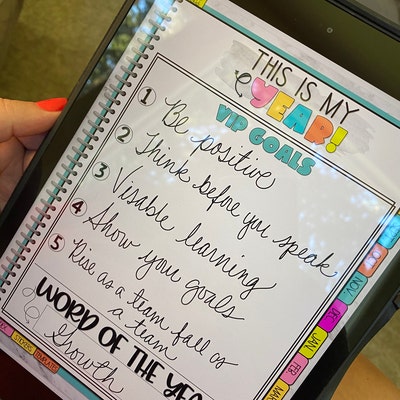 THIS IS MY
YEAR!
VIP GOALS
1 Be positive
2 Think before you speak
3 Visible learning
4 Show you goals
5 Rise as a team fall as
a team
WORD OF THE YEA
Growth
NOV
DEC
JAN
FEB
MAR
STICKERS